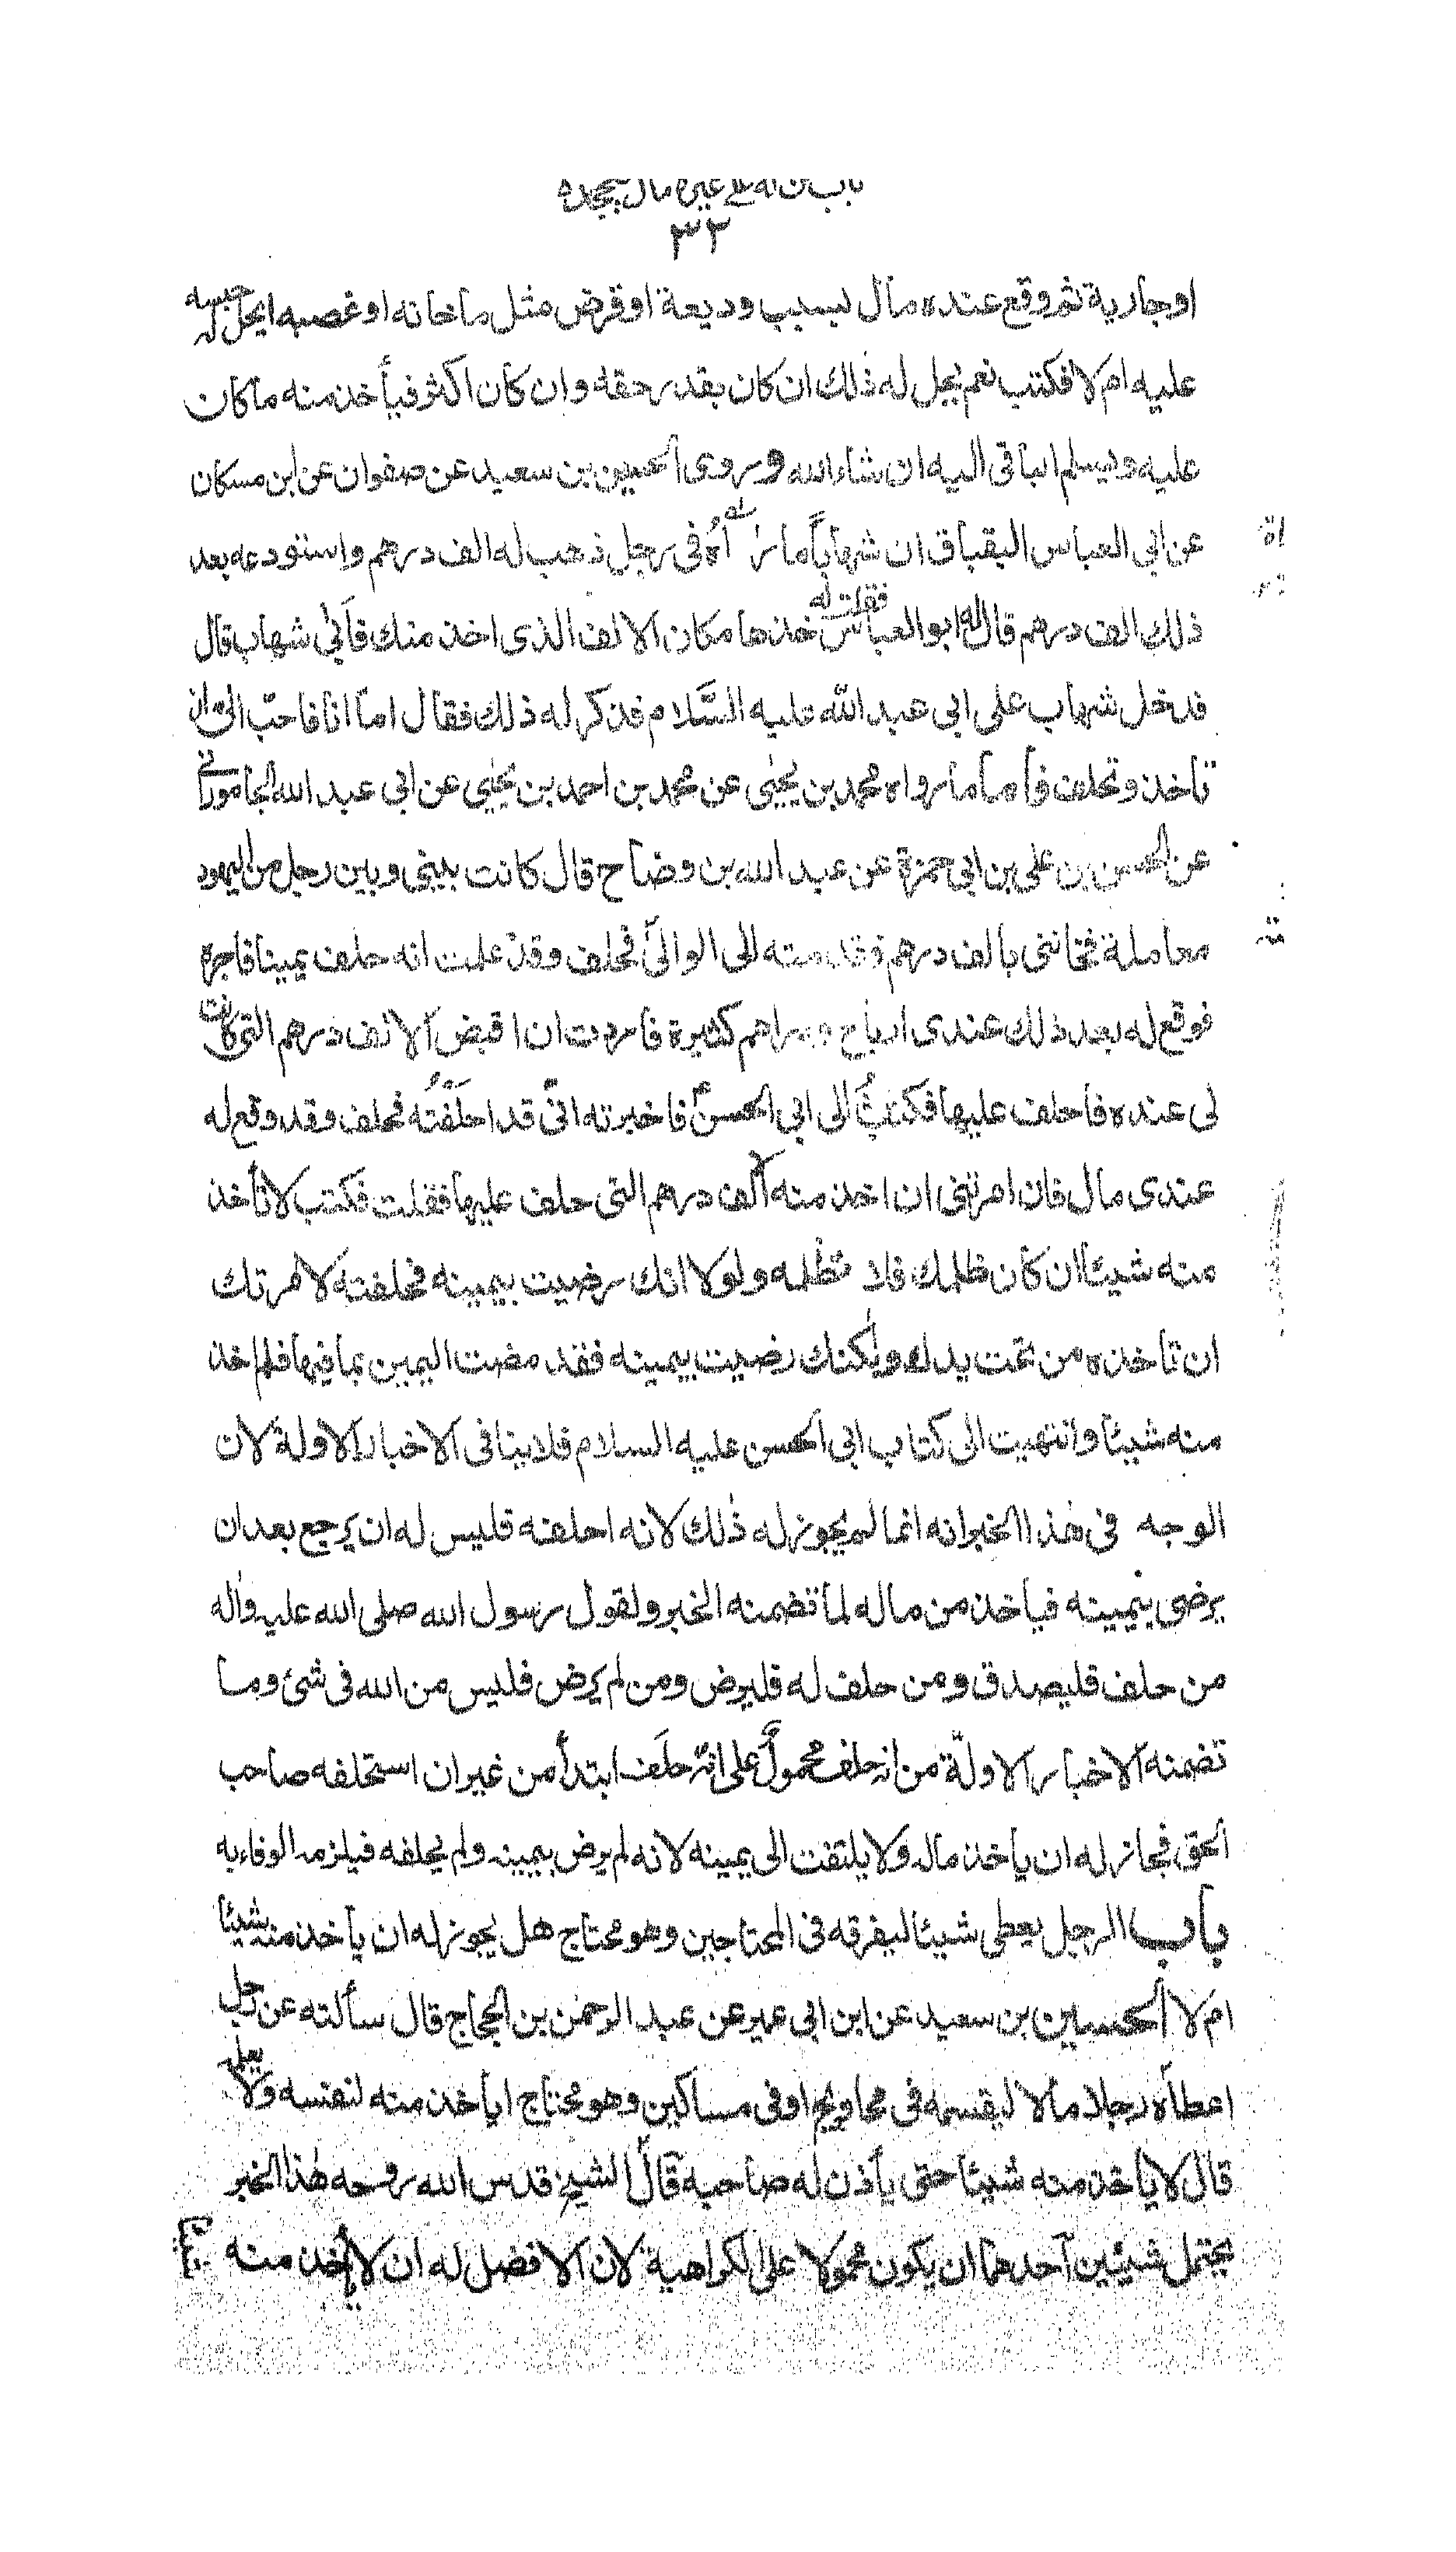 باب من له على غيره مال يجحده
٣٢
او جارية ثم وقع عنده مال بسبب وديعة او قرض مثل ما خانه او غصبه ايحل له حبسه
عليه ام لا فكتب نعم يحل له ذلك ان كان بقدر حقه وان كان اكثر فيأخذ منه ما كان
عليه ويسلم الباقى اليه ان شاء الله وروى الحسين بن سعيد عن صفوان عن ابن مسكان
عن ابى العباس البقباق ان شهاباً ماراه فى رجل ذهب له الف درهم واستودعه بعد
ذلك الف درهم قال له ابو العباس فقلت له خذها مكان الالف الذى اخذ منك فأبى شهاب قال
فدخل شهاب على ابى عبد الله عليه السّلام فذكر له ذلك فقال امّا انا فاحبّ الىّ ان
تأخذ وتحلف فأما ما رواه محمد بن يحيى عن محمد بن احمد بن يحيى عن ابى عبد الله الجامورانى
عن الحسن بن على بن ابى حمزة عن عبد الله بن وضاح قال كانت بينى وبين رجل من اليهود
معاملة فخاننى بالف درهم فقدمته الى الوالى فحلف وقد علمت انه حلف يمينا فاجرة
فوقع له بعد ذلك عندى ارباح ودراهم كثيرة فاردت ان اقبض الالف درهم التى كانت
لى عنده فاحلف عليها فكتبتُ الى ابى الحسن ع فاخبرته انّى قد احلَفْتُه فحلف وقد وقع له
عندى مال فان امرتنى ان اخذ منه الالف درهم التى حلف عليها فقلت فكتب لا تأخذ
منه شيئاً ان كان ظلمك فلا تظلمه ولولا انك رضيت بيمينه فحلفته لامرتك
ان تاخذه من تحت يدك ولكنك رضيت بيمينه فقد مضت اليمين بما فيها فلم اخذ
منه شيئاً وانتهيت الى كتاب ابى الحسن عليه السلام فلا ينافى الاخبار الاولة لان
الوجه فى هذا الخبر انه انما لم يجوز له ذلك لانه احلفه فليس له ان يرجع بعد ان
يرضى بيمينه فياخذ من ماله لما تضمنه الخبر ولقول رسول الله صلى الله عليه وآله
من حلف فليصدق ومن حلف له فليرض ومن لم يرض فليس من الله فى شئ وما
تضمنه الاخبار الاولّة من انه حلف محمولٌ على انّه حلَف ابتدأ من غير ان استحلفه صاحب
الحق فجاز له ان يأخذ ماله ولا يلتفت الى يمينه لانه لم يرض بيمينه ولم يحلفه فيلزمه الوفاء به
باب الرجل يعطى شيئا ليفرقه فى المحتاجين وهو محتاج هل يجوز له ان يأخذ منه شيئا
ام لا الحسين بن سعيد عن ابن ابى عمير عن عبد الرحمن بن الحجاج قال سألته عن رجل
اعطاه رجلا مالا ليقسمه فى محاويج او فى مساكين وهو محتاج ايأخذ منه لنفسه ولا يعلمه
قال لا يأخذ منه شيئا حتى يأذن له صاحبه قال الشيخ قدس الله روحه هذا الخبر
يحتمل شيئين احدهما ان يكون محمولا على الكراهية لان الافضل له ان لا يأخذ منه